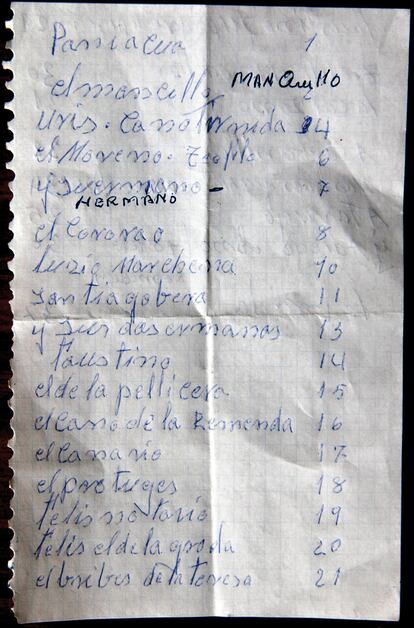 Paniagua 1
el mancillo MANQUILLO
Uris. Cano Timida 4
el Moreno. Teofilo 6
y su ermano - 7
HERMANO
el Cororao 8
Luzio Marchena 10
Santiago bera 11
y sus dos ermanos 13
faustino 14
el de la pellicera 15
el Cano de la Remenda 16
el Canario 17
el protuges 18
felis notario 19
felis el de la goda 20
el bribes de la teresa 21